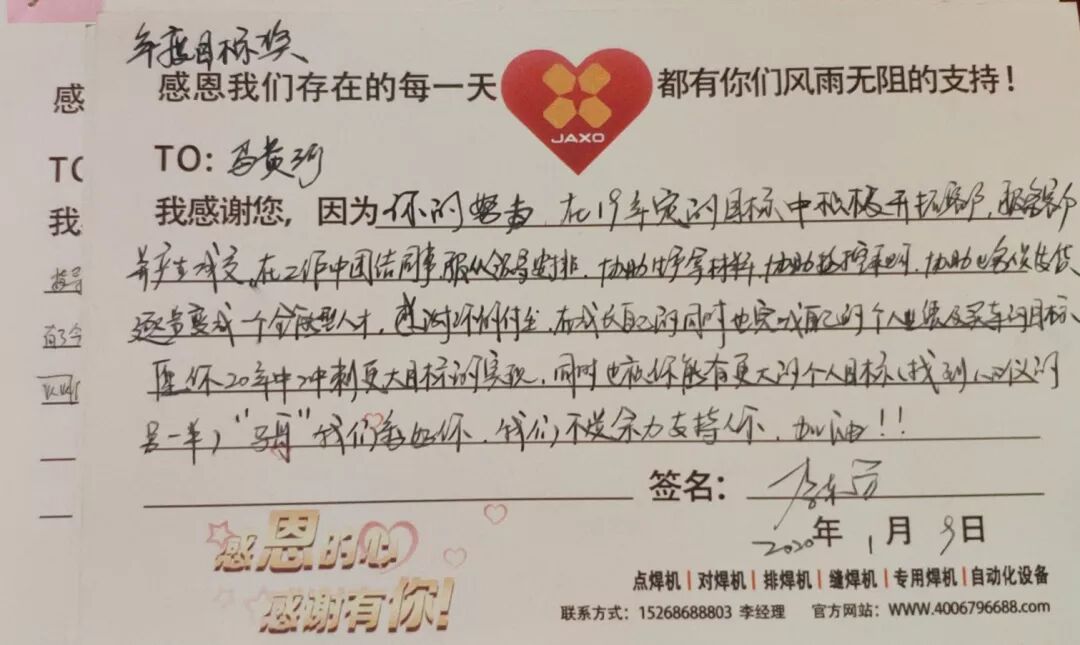 年度目标奖
感恩我们存在的每一天 JAXO 都有你们风雨无阻的支持！
TO: 马贵河
我感谢您，因为你的努力，在19年定的目标中积极开拓客户，服务客户
并产生成交。在工作中团结同事服从领导安排，协助生产拿材料，协助
逐步变成一个全能型人才，感谢你的付出，在成长自己的同时也完成自己的个人业绩及买车的目标
愿你20年中冲刺更大目标的实现，同时也祝你能有更大的个人目标（找到心仪的
另一半），我们看好你，我们不遗余力支持你，加油！！
签名：
2020年 1月 9日
感恩的心
感谢有你！
点焊机｜对焊机｜排焊机｜缝焊机｜专用焊机｜自动化设备
联系方式：15268688803 李经理 官方网站：WWW.4006796688.COM
感
TO
我